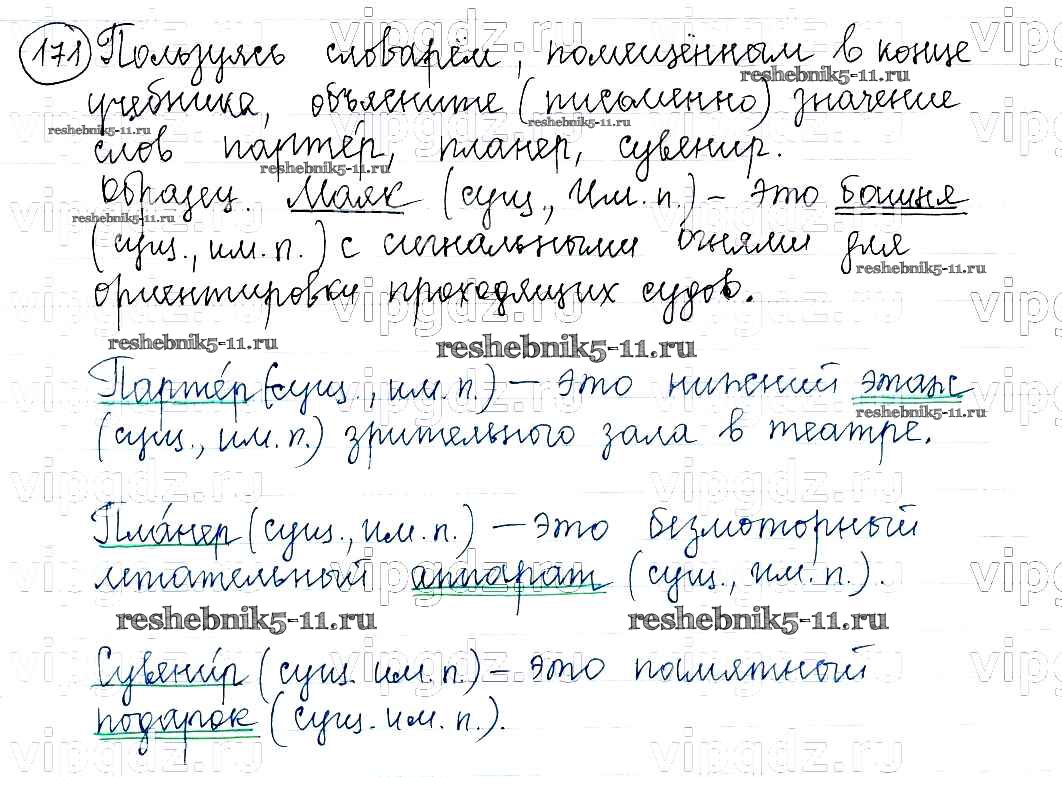 171 Пользуясь словарём, помещённым в конце
учебника, объясните (письменно) значение
слов партéр, планер, сувенир.
Образец. Маяк (сущ., Им. п.) – это башня
(сущ., им. п.) с сигнальными огнями для
ориентировки проходящих судов.
Партéр (сущ., им. п.) – это нижний этаж
(сущ., им. п.) зрительного зала в театре.
Плáнер (сущ., им. п.) – это безмоторный
летательный аппарат (сущ., им. п.).
Сувени́р (сущ. им. п.) – это памятный
подарок (сущ. им. п.).
vipgdz.ru
reshebnik5-11.ru